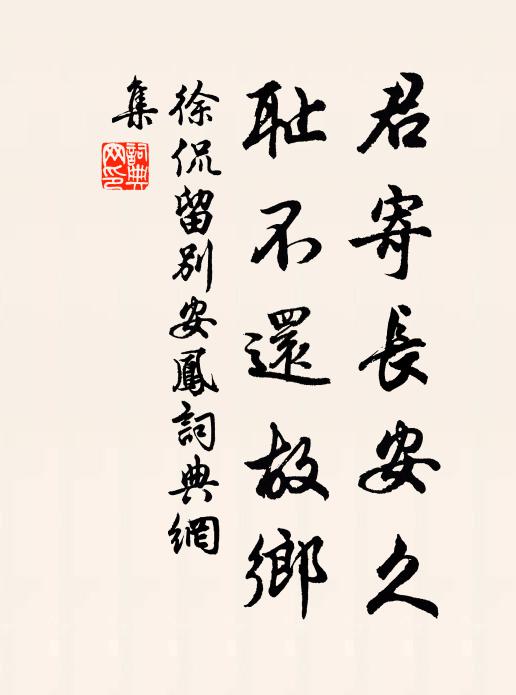 君寄長安久
耻不還故鄉
徐侃留別安鳳詞典網
集
詞典網印